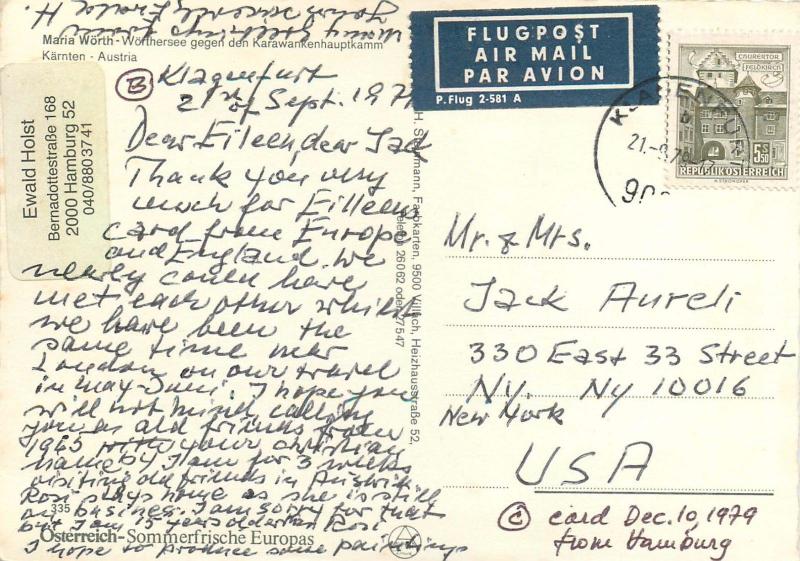 Maria Wörth - Wörthersee gegen den Karawankenhauptkamm
Kärnten - Austria
Ewald Holst
Bernadottestraße 168
2000 Hamburg 52
040/880 37 41
B Klagenfurt
21st of Sept. 197
Dear Eileen, dear Jack
Thank you very
much for Eilleen
card from Europe
and England. We
nearly could have
met each other whilst
we have been the
same time near
London on our travel
in May-Juni. I hope you
will not mind calling
you as old friends from
1965 with your christian
name. I am for 3 weeks
visiting old friends in
Rosi stays home as she is still
on business. I am sorry for that
but I am 15 years older as Rosi
I hope to produce some paintings
335
Österreich-Sommerfrische Europas
FLUGPOST
AIR MAIL
PAR AVION
P. Flug 2-581 A
CHURERTOR
FELDKIRCH
S 5.50
REPUBLIK ÖSTERREICH
KLAGENFURT
21.-9.78
Farbkarten, 9500 Villach, Heizhausstraße 52,
26062 oder 27547
Mr. & Mrs.
Jack Aureli
330 East 33 Street
NY. NY 10016
New York
USA
C card Dec. 10, 1979
from Hamburg